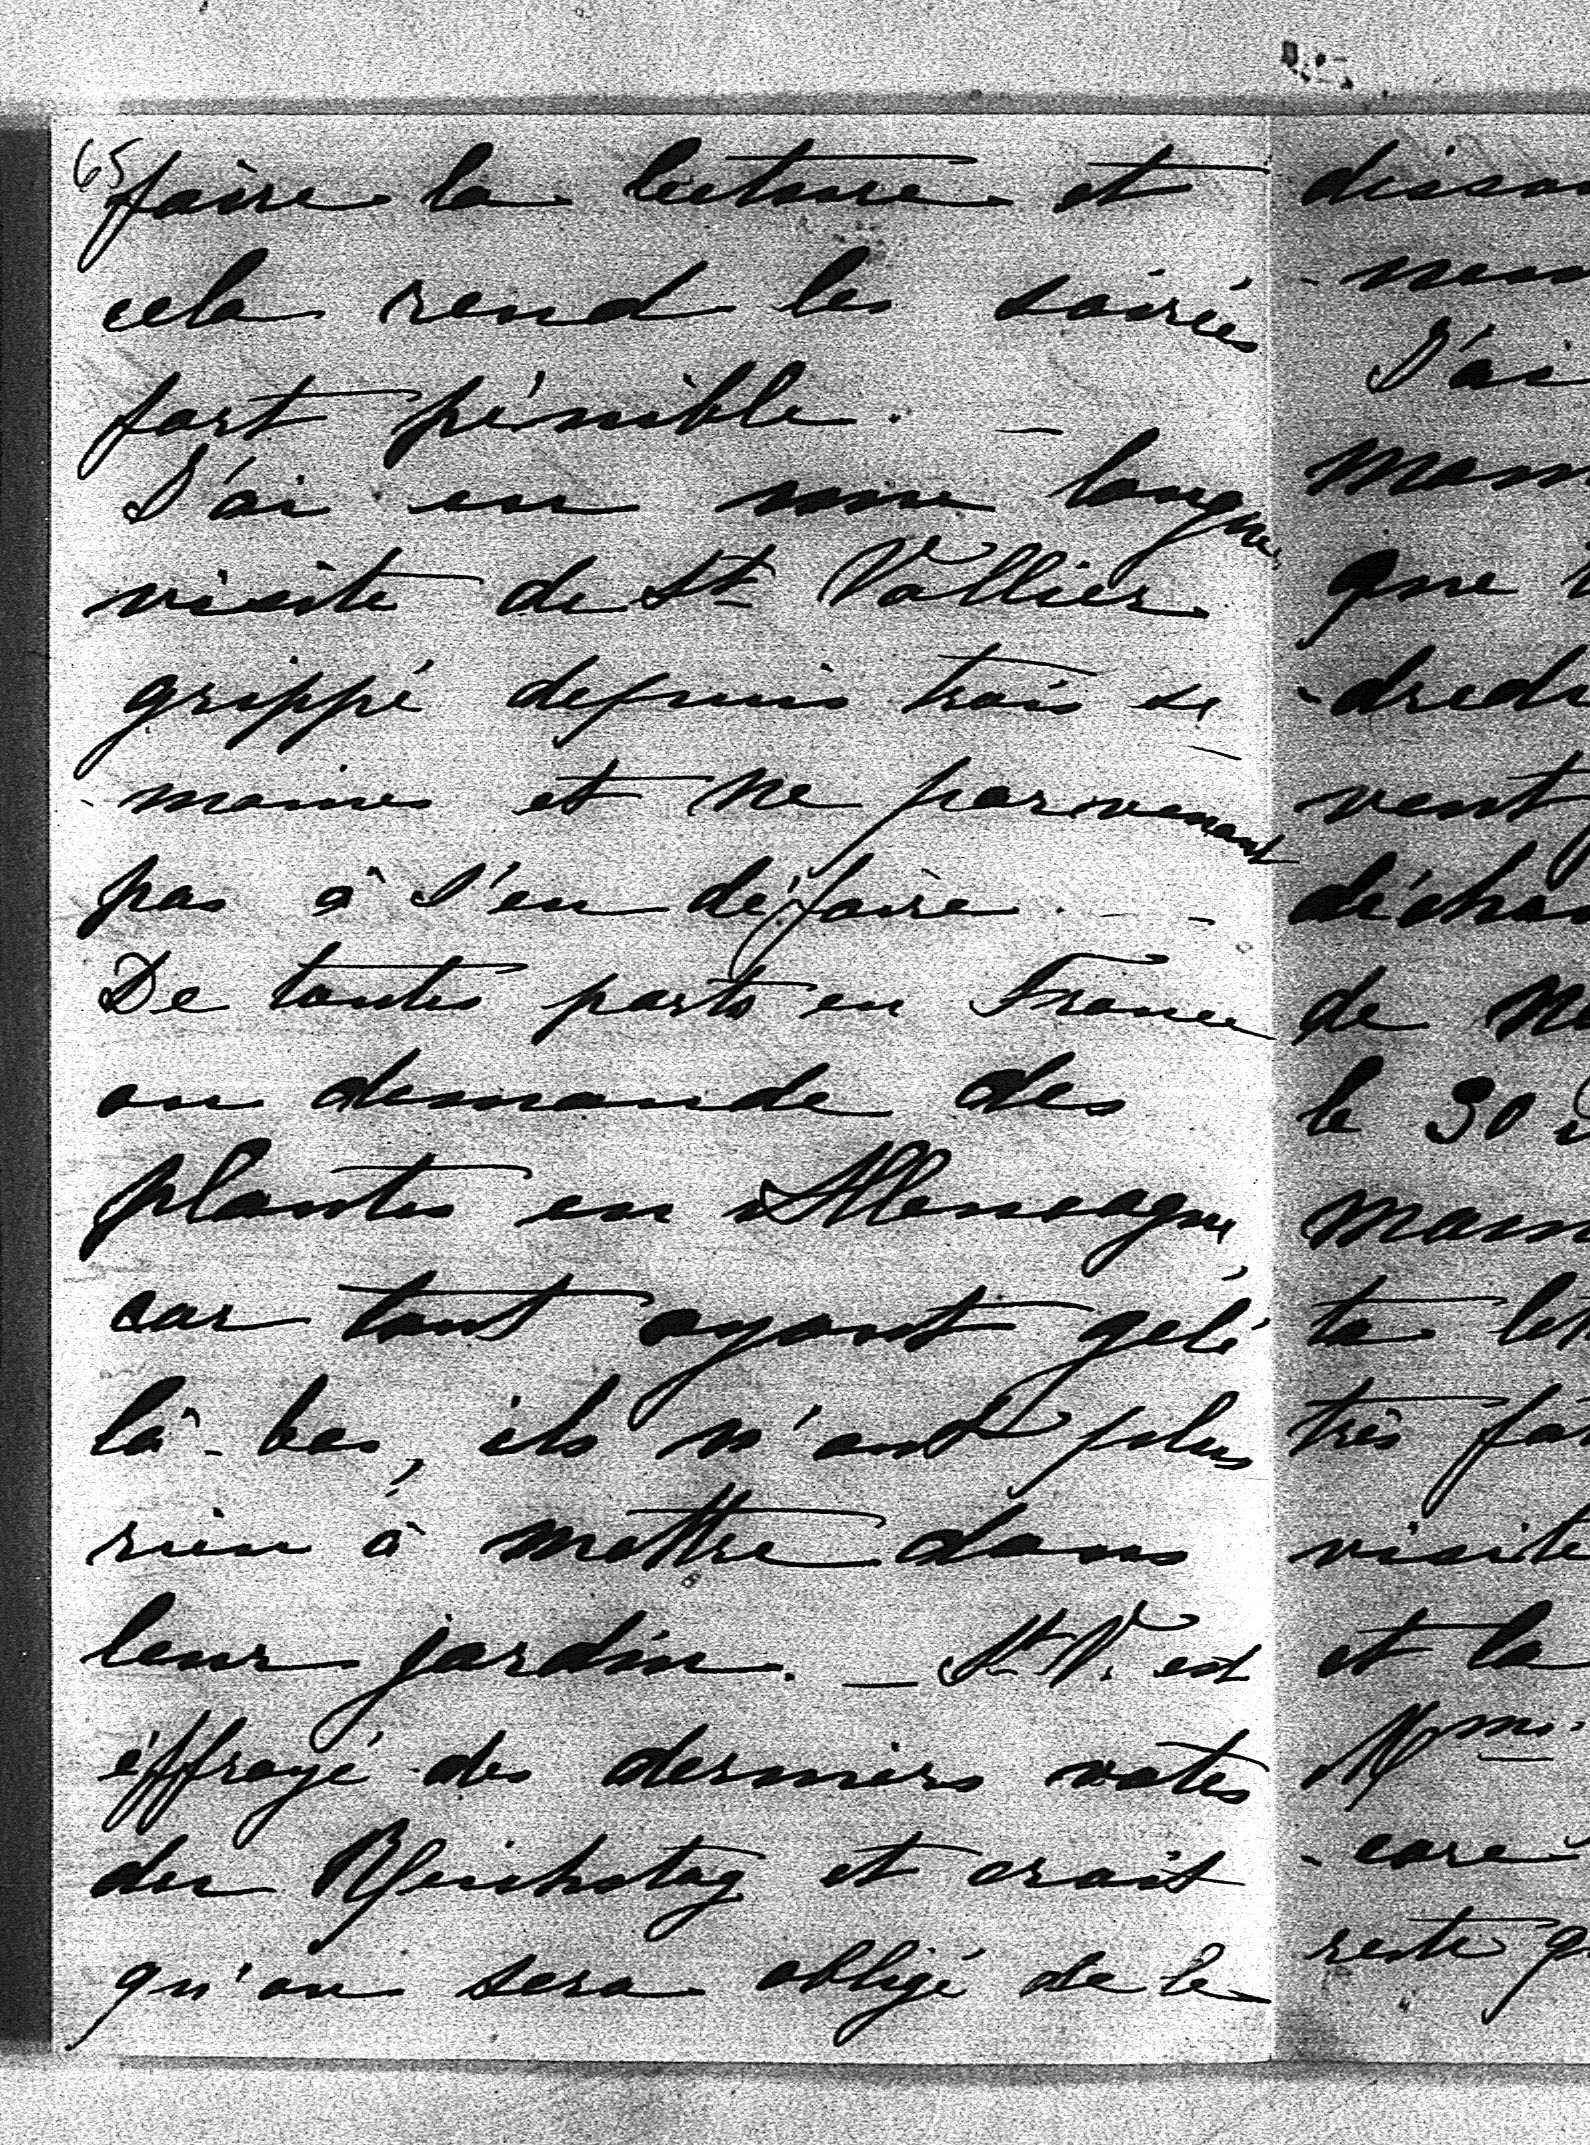 65
faire la lecture et
cela rend les soirées
fort pénible. —
J'ai eu une longue
visite de St Vallier
grippé depuis trois se
-maines et ne parvenant
pas à s'en défaire. —
De toutes parts en France
on demande des
plantes en Allemagne,
car tout ayant gelé
là-bas, ils n'ont plus
rien à mettre dans
leur jardin. — St V. est
éffrayé des derniers votes
du Reichstag et croit
qu'on sera obligé de le
-nem
J'ai
que
-dredi
vent
de
le 30
ta
très
visite
et la
Mme
-core
reste